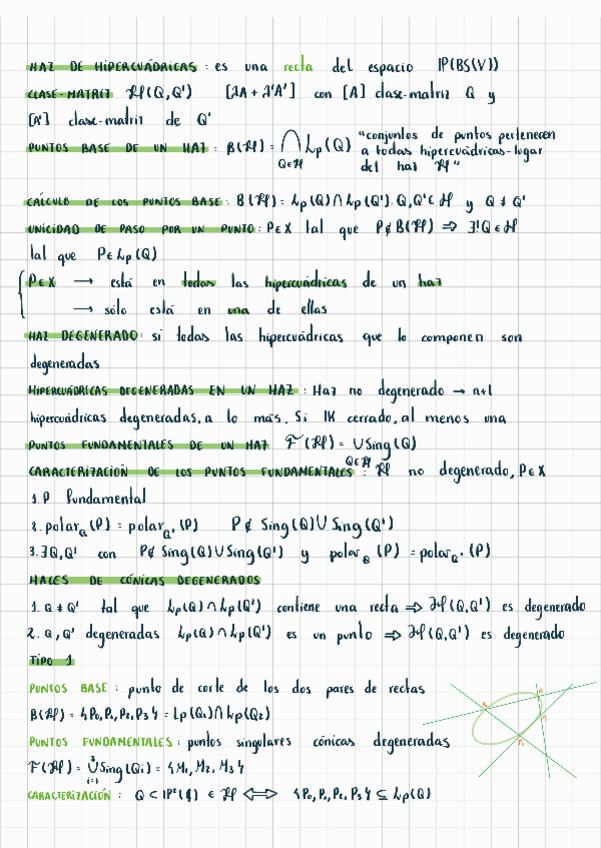 HAZ DE HIPERCUÁDRICAS : es una recta del espacio IP(BS(V))
CLASE-MATRIZ ℋ(Q,Q') [λA + λ'A'] con [A] clase-matriz Q y
[A'] clase-matriz de Q'
PUNTOS BASE DE UN HAZ : B(ℋ) = ⋂ Lp(Q) "conjuntos de puntos pertenecen
Q∈ℋ a todas hipercuádricas-lugar
del haz ℋ"
CÁLCULO DE LOS PUNTOS BASE : B(ℋ) = Lp(Q) ∩ Lp(Q'). Q,Q' ∈ ℋ y Q ≠ Q'
UNICIDAD DE PASO POR UN PUNTO : P∈X tal que P∉B(ℋ) ⇒ ∃!Q∈ℋ
tal que P∈Lp(Q)
P∈X → está en todas las hipercuádricas de un haz
→ sólo está en una de ellas
HAZ DEGENERADO : si todas las hipercuádricas que lo componen son
degeneradas
HIPERCUÁDRICAS DEGENERADAS EN UN HAZ : Haz no degenerado → n+1
hipercuádricas degeneradas, a lo más. Si IK cerrado, al menos una
PUNTOS FUNDAMENTALES DE UN HAZ ℱ(ℋ) = ∪Sing(Q)
Q∈ℋ
CARACTERIZACIÓN DE LOS PUNTOS FUNDAMENTALES : ℋ no degenerado, P∈X
1. P fundamental
2. polar_Q (P) = polar_Q' (P) P∉ Sing(Q)∪Sing(Q')
3. ∃Q,Q' con P∉ Sing(Q)∪Sing(Q') y polar_Q (P) = polar_Q' (P)
HACES DE CÓNICAS DEGENERADOS
1. Q ≠ Q' tal que Lp(Q) ∩ Lp(Q') contiene una recta ⇒ ℋ(Q,Q') es degenerado
2. Q, Q' degeneradas Lp(Q) ∩ Lp(Q') es un punto ⇒ ℋ(Q,Q') es degenerado
TIPO 1
PUNTOS BASE : punto de corte de los dos pares de rectas
B(ℋ) = {P₀,P₁,P₂,P₃} = Lp(Q₁) ∩ Lp(Q₂)
PUNTOS FUNDAMENTALES : puntos singulares cónicas degeneradas
ℱ(ℋ) = ∪³ᵢ₌₁ Sing(Qi) = {M₁, M₂, M₃}
CARACTERIZACIÓN : Q ⊂ IP²(₵) ∈ ℋ ⟺ {P₀,P₁,P₂,P₃} ⊆ Lp(Q)